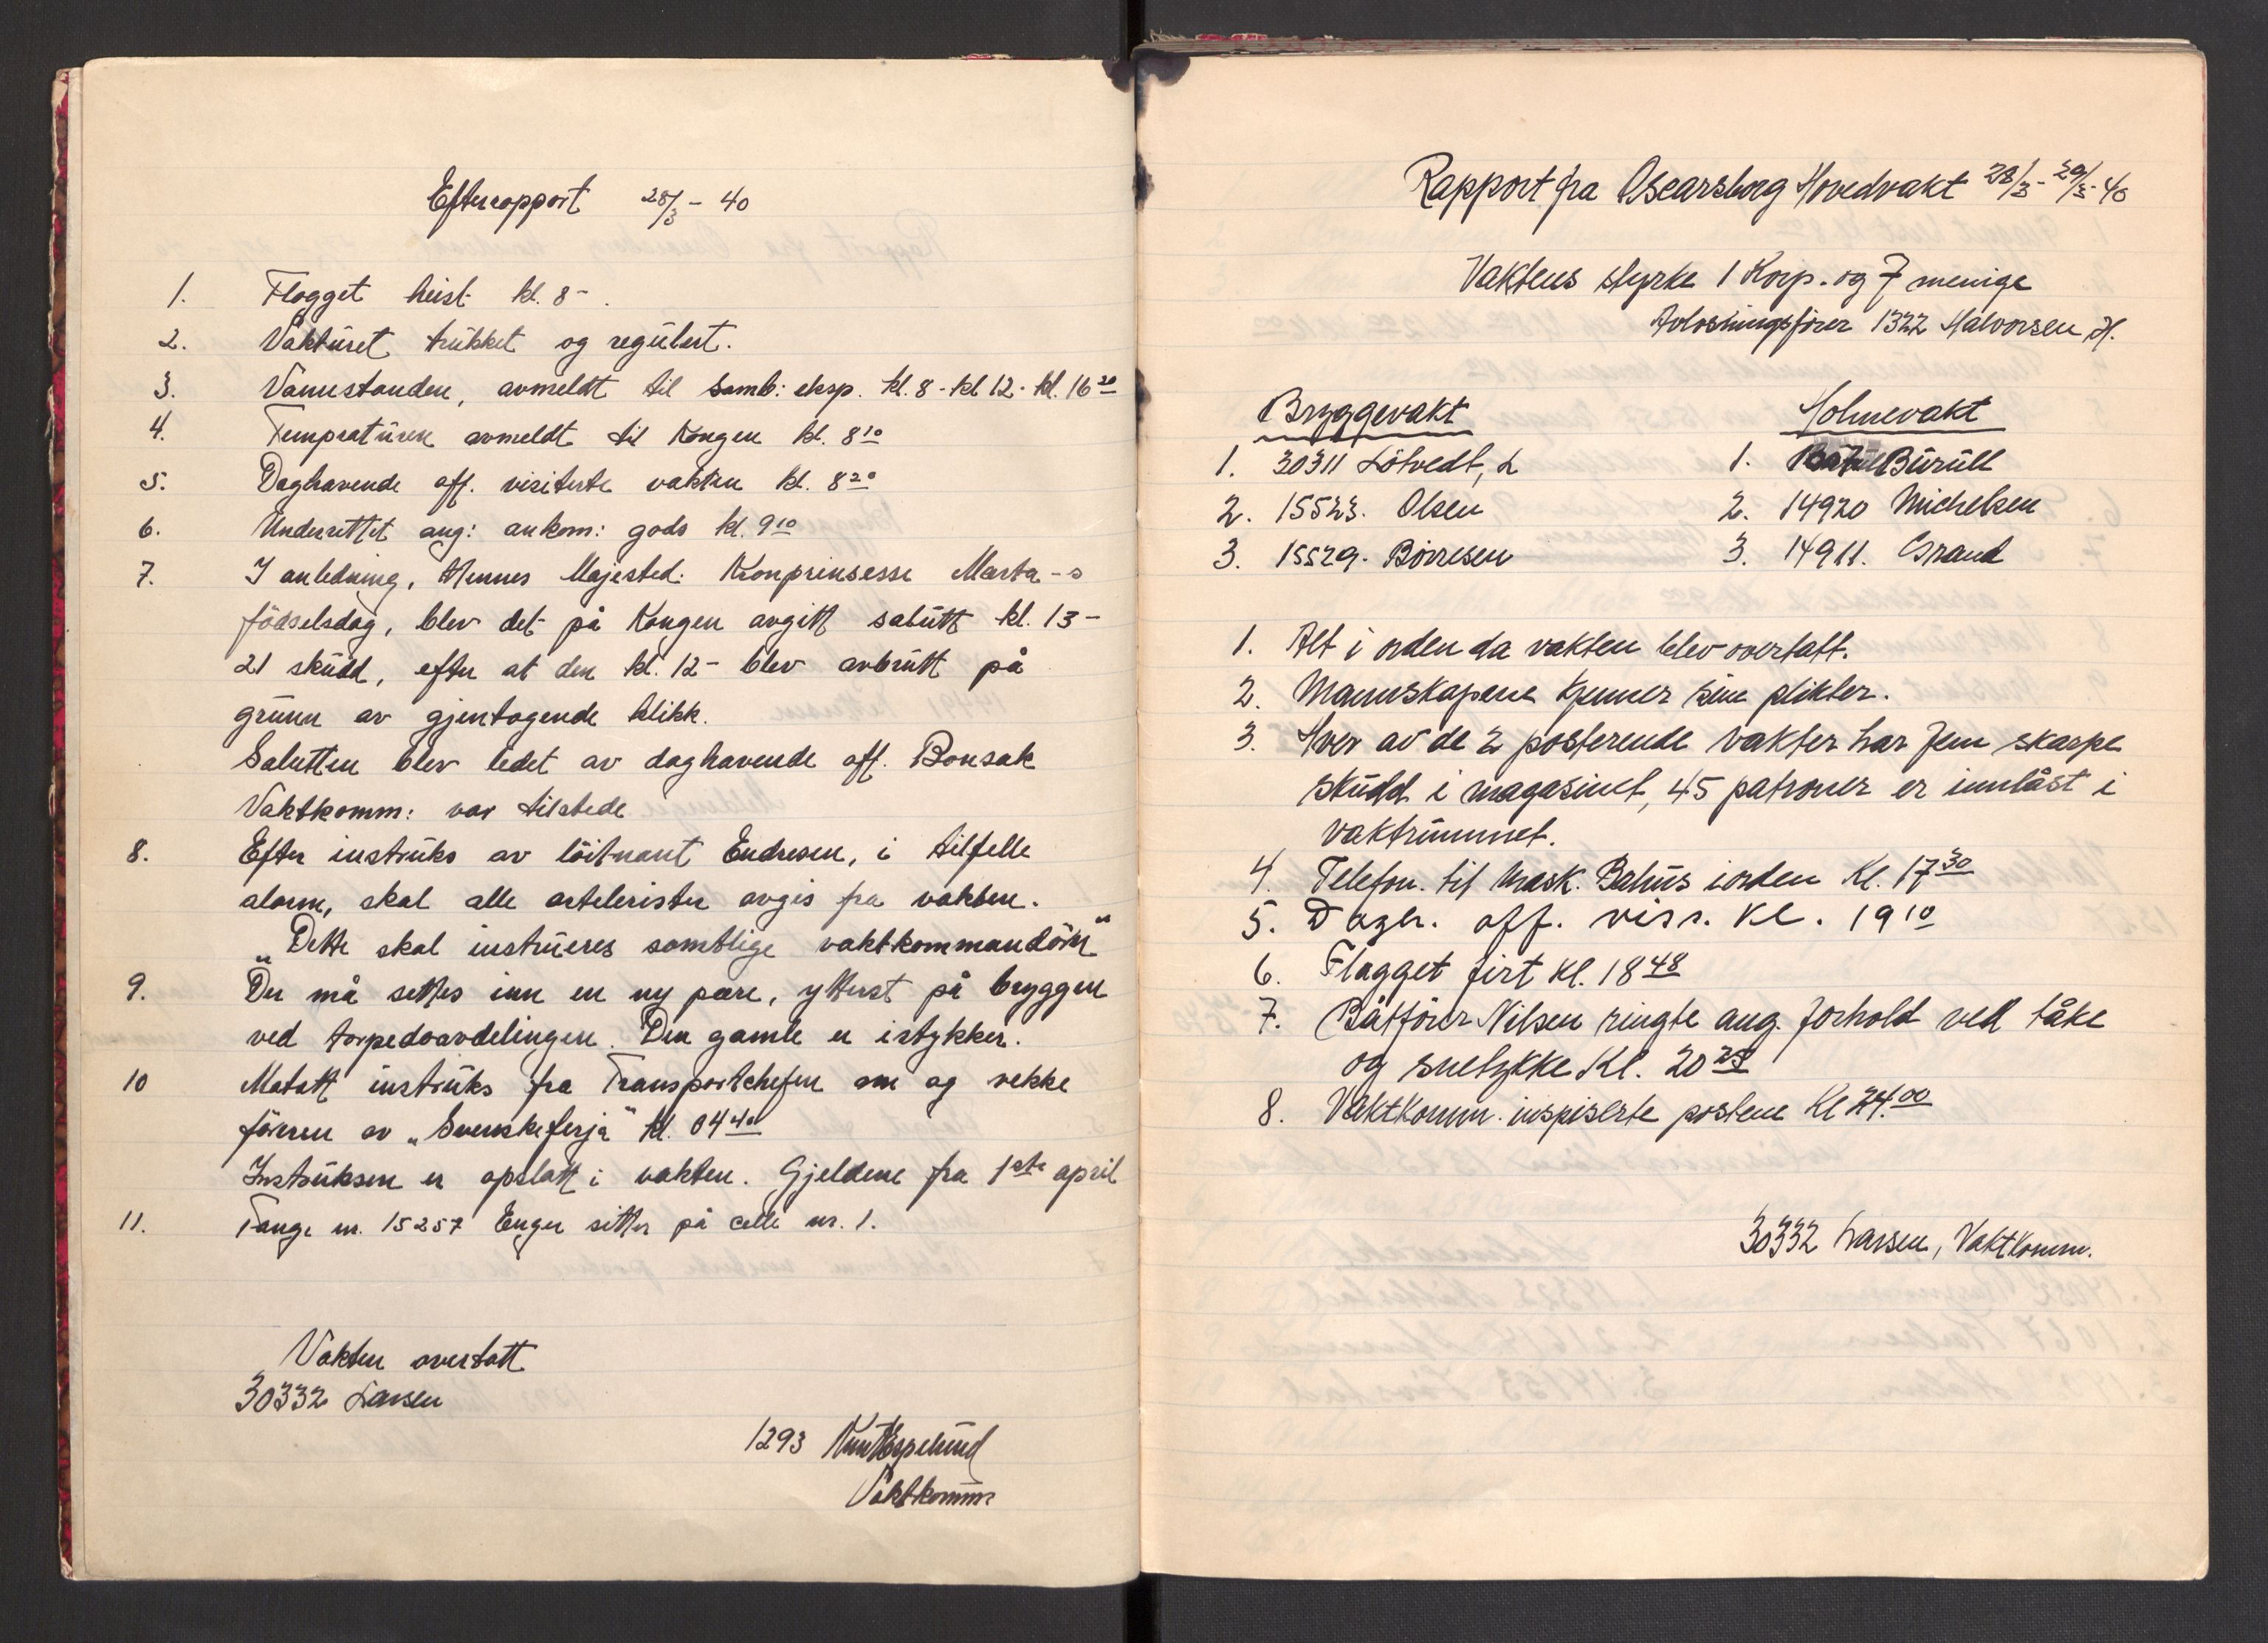 Efterrapport 28/3 - 40
1. Flagget heist kl. 8 -.
2. Vaktüret trükket og regülert.
3. Vannstanden, avmeldt til Samb: eksp. kl. 8 - kl 12 - kl. 16 20
4. Tempratüren avmeldt til Kongen kl. 8 10
5. Daghavende off. visiterte vakten kl. 8 20
6. Underrettet ang: ankom: gods kl. 9 10
7. I anledning, Hennes Majested: Kronprinsesse Marta-s
födselsdag, blev det på Kongen avgitt salütt kl. 13 -
21 sküdd, efter at den kl. 12 - blev avbrütt på
grünn av gjentagende klikk.
Salutten blev ledet av daghavende off. Bonsak
Vaktkomm: var tilstede
8. Efter instrüks av löitnant Endresen, i tilfelle
alarm, skal alle artelerister avgis fra vakten.
„Dette skal instrüeres samtlige vaktkommandörer"
9. Der må settes inn en ny pære, ytterst på bryggen
ved torpedoavdelingen. Den gamle er istykker.
10 Motatt instrüks fra Transportchefen om og vekke
föreren av „Svenskeferja" kl. 04 40
Instrüksen er opslatt i vakten. Gjeldene fra 1ste april
11. Fange nr. 15257 Enger sitter på celle nr. 1.
Vakten overtatt
30332 Larsen
1293 Knut Espelund
Vaktkomm
Rapport fra Oscarsborg Hovedvakt 28/3 - 29/3 - 40
Vaktens styrke 1 Korp. og 7 menige
Avløsningsfører 1322 Halvorsen H.
Bryggevakt Holmevakt
1. 30311 Lötvedt, L 1. Bürüll
2. 15523. Olsen 2. 14920 Michelsen
3. 15529. Börresen 3. 14911. Grand
1. Alt i orden da vakten blev overtatt.
2. Mannskapene kjenner sine plikter.
3. Hver av de 2 posterende vakter har fem skarpe
sküdd i magasinet, 45 patroner er innlåst i
vaktrümmet.
4. Telefon. til Mask. Bahüs iorden Kl. 17 30
5. Dagh. off. viss. Kl. 19 10
6. Flagget firt Kl. 18 48
7. Båtfører Nilsen ringte ang. forhold ved tåke
og snetykke Kl. 20 25
8. Vaktkomm. inspiserte postene Kl 24.00
30332 Larsen, Vaktkomm.